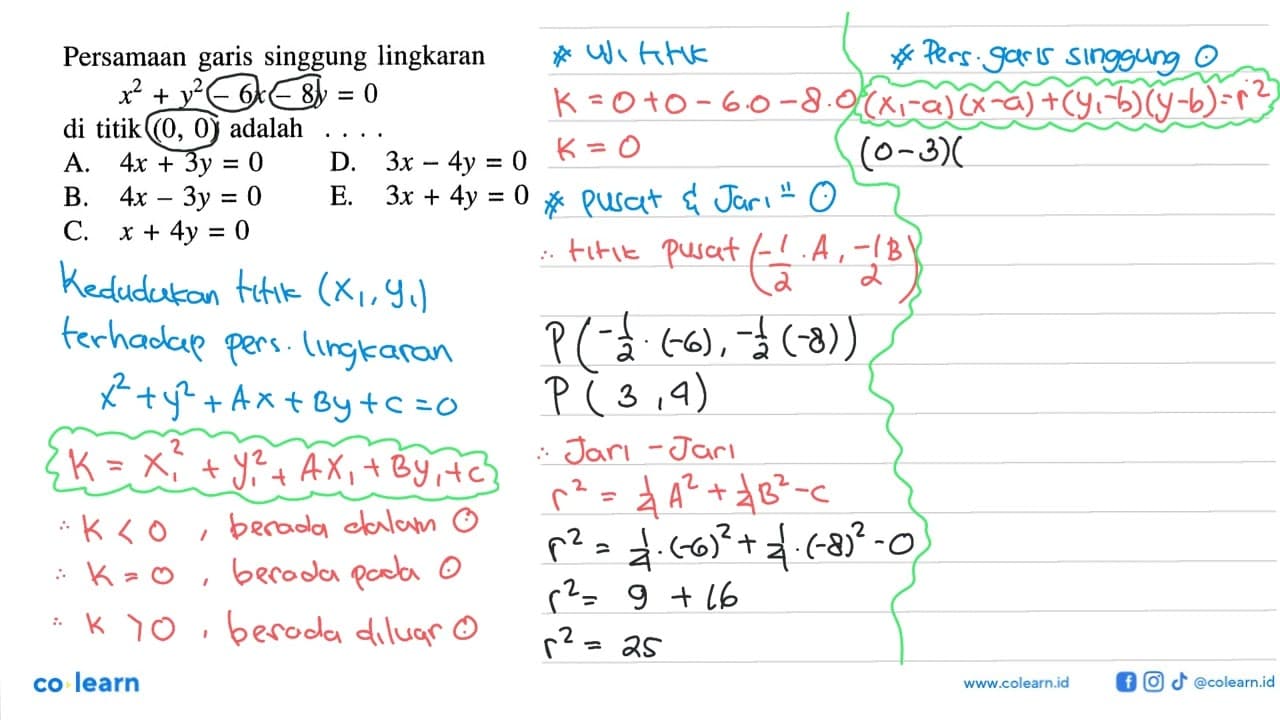 Persamaan garis singgung lingkaran
x² + y² – 6x – 8y = 0
di titik (0, 0) adalah . . . .
A. 4x + 3y = 0 D. 3x – 4y = 0
B. 4x – 3y = 0 E. 3x + 4y = 0
C. x + 4y = 0
Kedudukan titik (x₁, y₁)
terhadap pers. lingkaran
x² + y² + Ax + By + c = 0
K = x₁² + y₁² + Ax₁ + By₁ + c
∴ K < 0 , berada dalam ⊙
∴ K = 0 , berada pada ⊙
∴ K > 0 , berada diluar ⊙
* Uji titik
K = 0 + 0 – 6.0 – 8.0
K = 0
* Pusat & Jari" ⊙
∴ titik pusat (-1/2 . A, -1/2 B)
P(-1/2 . (-6), -1/2 (-8))
P(3, 4)
∴ Jari - Jari
r² = 1/4 A² + 1/4 B² - c
r² = 1/4 . (-6)² + 1/4 . (-8)² - 0
r² = 9 + 16
r² = 25
* Pers. garis singgung ⊙
(x₁-a)(x-a)+(y₁-b)(y-b)=r²
(0-3)(
co learn
www.colearn.id
@colearn.id